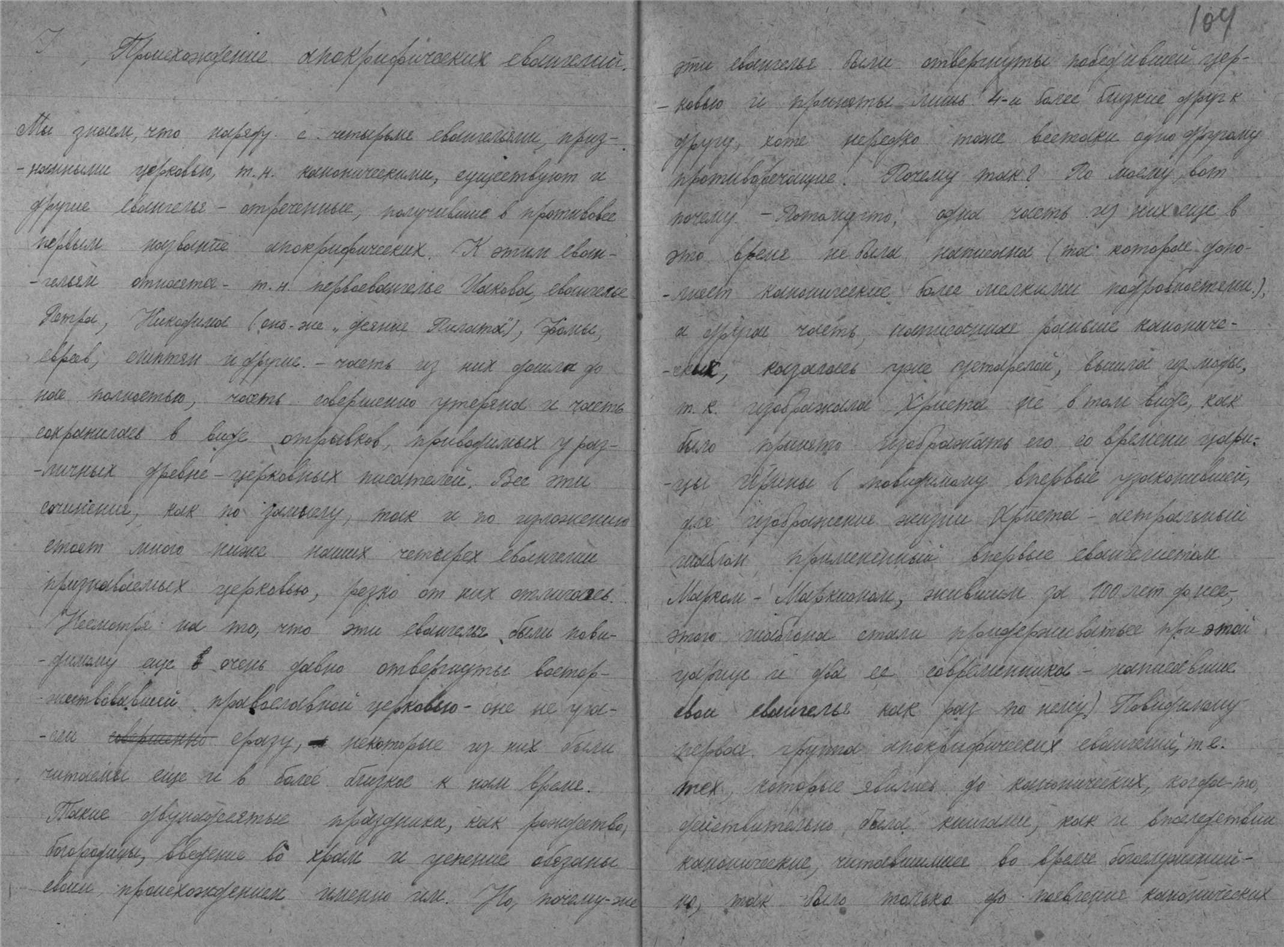 I, Происхождение апокрифических евангелий.
Мы знаем, что наряду с четырьмя евангелиями, приз-
-нанными церковью, т.н. каноническими, существуют и
другие евангелья – отреченные, получившие в противовес
первым название апокрифических. К этим еван-
-гельям относятся – т.н. первоевангелье Иакова, евангелье
Петра, Никодима (оно-же „деяние Пилата"), Фомы,
евреев, египтян и другие. – часть из них дошла до
нас полностью, часть совершенно утеряна и часть
сохранилась в виде отрывков, приводимых у раз-
-личных древне-церковных писателей. Все эти
сочинения, как по замыслу, так и по изложению
стоят много ниже наших четырех евангелий
признаваемых церковью, резко от них отличаясь.
Несмотря на то, что эти евангелья были пови-
-димому еще в очень давно отвергнуты востор-
-жествовавшей православной церковью – оне не ута-
совершенно сразу, некоторые из них были
читаемы еще и в более близкое к нам время.
Такие двунадесятые праздники, как рождество,
богородицы, введение во храм и успение обязаны
своим происхождением именно им. Но, почему-же
104
эти евангелья были отвергнуты победившей цер-
-ковью и приняты лишь 4-и более близкие друг к
другу, хотя нередко тоже всетаки одно другому
противоречащие. Почему так? По моему вот
почему – Потому что, одна часть из них еще в
это время не была написана (та которая допо-
-лняет канонические более мелкими подробностями),
а другая часть, написанная раньше канониче-
-ских, казалась уже устарелой, вышла из моды,
т.к. изображала Христа не в том виде, как
было принято изображать его со времени цари-
-цы Ирины (повидимому впервые узаконившей,
для изображения жизни Христа – астральный
шаблон примененный впервые евангелистом
Марком – Маркионом, жившим за 100 лет до нее,
этого шаблона стали придерживаться при этой
царице и два ее современника – написавшие
свои евангелья как раз по нему). Повидимому
первая группа апокрифических евангелий, т.е.
тех, которые явились до канонических, когда-то,
действительно была книгами, как и впоследствии
канонические, читавшимися во время богослужений-
но, так было только до появления канонических